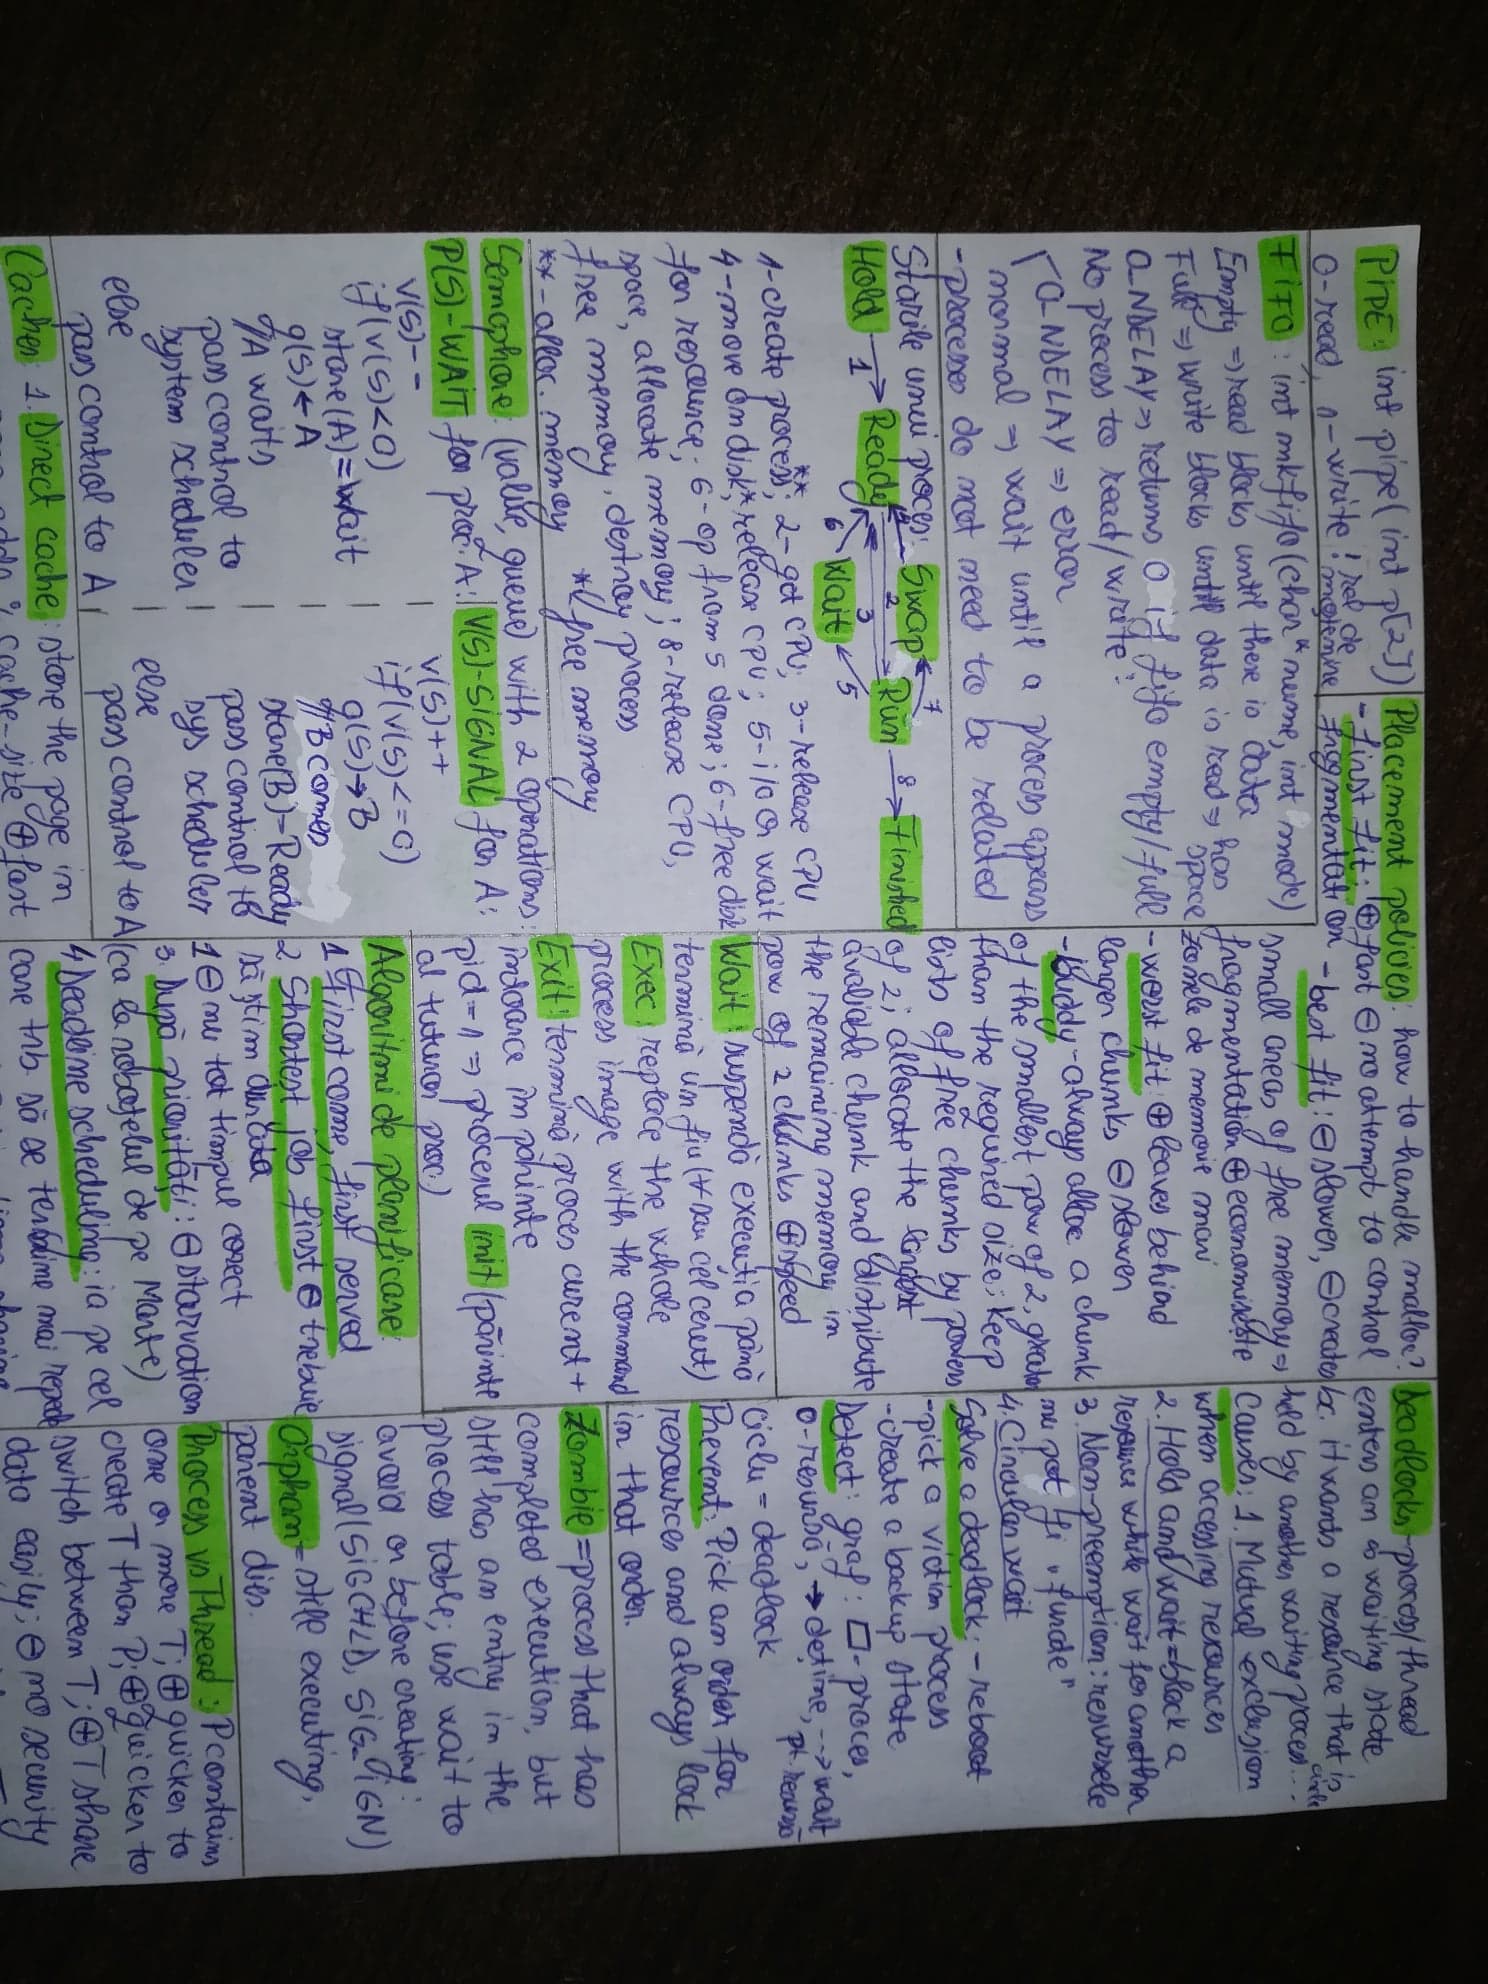 PIPE: int pipe(int p[2])
0-read, 1-write ! rel de moștenire
FIFO: int mkfifo(char* nume, int mode)
Empty => read blocks until there is data
Full => write blocks until data is read => has space
O_NDELAY => returns 0 if fifo empty/full
No process to read/write:
O_NDELAY => error
normal => wait until a process appears
-processes do not need to be related
Stările unui proces:
Swap
7
Hold
1
Ready
4
2
3
Run
8
Finished
6
Wait
5
1-create process**; 2-get CPU; 3-release CPU
4-move on disk*, release CPU; 5-i/o or wait
for resource; 6-op from 5 done; 6-free disk
space, allocate memory; 8-release CPU,
free memory, destroy process
** - alloc. memory * free memory
Semaphore: (value, queue) with 2 operations:
P(S)-WAIT for proc. A:
v(S)--
if(v(S)<0)
stare(A)=Wait
q(S)←A
//A waits
pass control to
system scheduler
else
pass control to A
V(S)-SIGNAL for A:
v(S)++
if(v(S)<=0)
q(S)→B
//B comes
stare(B)=Ready
pass control to
sys scheduler
else
pass control to A
Caches: 1. Direct cache: store the page in
% cache-size ⊕fast
Placement policies: how to handle malloc?
-first fit: ⊕fast ⊖no attempt to control
fragmentation
-best fit: ⊖slower, ⊖creates
small areas of free memory =>
fragmentation ⊕economisește
zonele de memorie mari
-worst fit: ⊕leaves behind
larger chunks ⊖slower
-buddy-always alloc a chunk
of the smallest pow of 2, greater
than the required size; keep
lists of free chunks by powers
of 2; allocate the largest
available chunk and distribute
the remaining memory in
pow of 2 chunks ⊕speed
Wait: suspendă execuția până
termină un fiu (∀ sau cel cerut)
Exec: replace the whole
process image with the command
Exit: termină proces curent +
întoarce în părinte
pid=1 => procesul init (părinte
al tuturor proc.)
Algoritmi de planificare:
1 First come, first served
2 Shortest job first ⊖ trebuie
să știm durata
1 ⊖ nu tot timpul corect
3. După priorități: ⊖starvation
(ca la roboțelul de pe Marte)
4 Deadline scheduling: ia pe cel
care trb. să se termine mai repede
Deadlocks-process/thread
enters an ∞ waiting state
bc. it wants a resource that is
held by another waiting process... circle
Causes: 1. Mutual exclusion
when accessing resources
2. Hold and wait=block a
resource while wait for another
3. Non-preemption: resursele
nu pot fi „furate”
4. Circular wait
Solve a deadlock: -reboot
-pick a victim process
-create a backup state
Detect: graf: □-proces,
o-resursă, → deține, --> wait pt. resursă
ciclu = deadlock
Prevent: Pick an order for
resources and always lock
in that order.
Zombie=process that has
completed execution, but
still has an entry in the
process table; use wait to
avoid or before creating:
signal(SIGCHLD, SIG_IGN)
Orphan=still executing,
parent dies.
Process vs Thread: P contains
one or more T; ⊕quicker to
create T than P; ⊕quicker to
switch between T; ⊕T share
data easily; ⊖no security